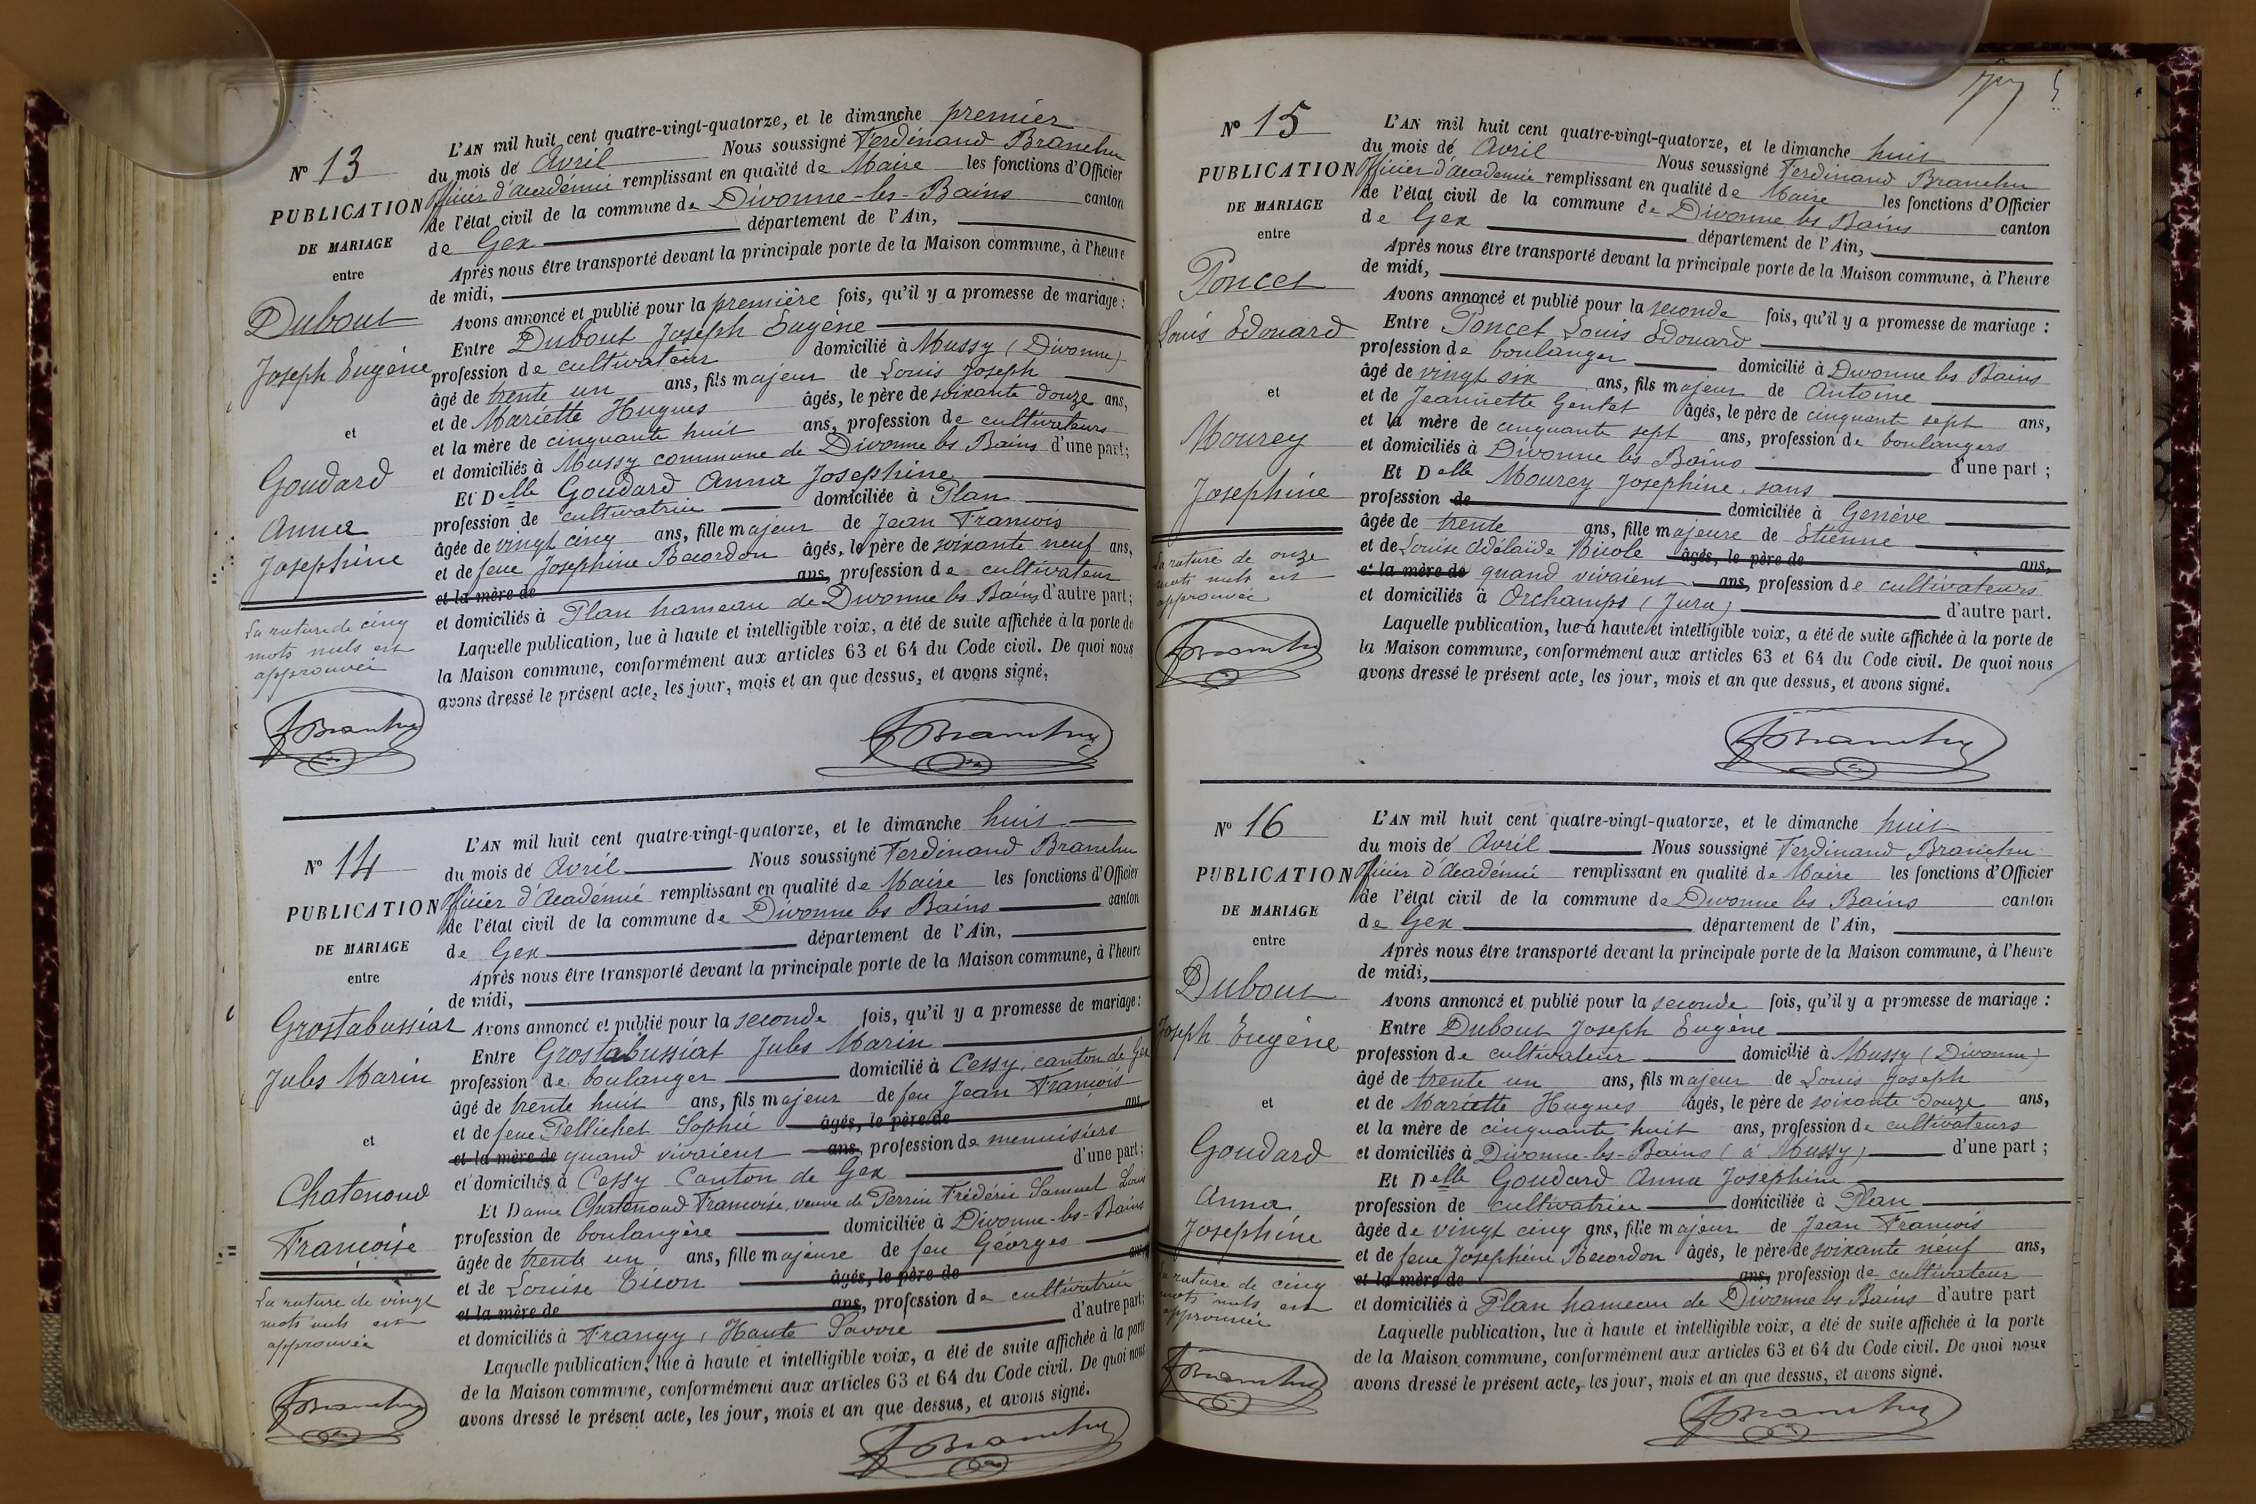 N° 13
PUBLICATION
DE MARIAGE
entre
Dubout
Joseph Eugène
et
Goudard
Anna
Josephine
La rature de cinq
mots nuls est
approuvée
FBranchu
L'AN mil huit cent quatre-vingt-quatorze, et le dimanche premier
du mois de Avril Nous soussigné Ferdinand Branchu
Officier d'Académie remplissant en qualité de Maire les fonctions d'Officier
de l'état civil de la commune de Divonne-les-Bains canton
de Gex département de l'Ain,
Après nous être transporté devant la principale porte de la Maison commune, à l'heure
de midi,
Avons annoncé et publié pour la première fois, qu'il y a promesse de mariage :
Entre Dubout Joseph Eugène
profession de cultivateur domicilié à Mussy (Divonne)
âgé de trente un ans, fils majeur de Louis Joseph
et de Mariette Hugues âgés, le père de soixante douze ans,
et la mère de cinquante huit ans, profession de cultivateurs
et domiciliés à Mussy commune de Divonne les Bains d'une part;
Et Delle Goudard Anna Josephine
profession de cultivatrice domiciliée à Plan
âgée de vingt cinq ans, fille majeur de Jean François
et de feue Josephine Recordon âgés, le père de soixante neuf ans,
et la mère de ans, profession de cultivateur
et domiciliés à Plan hameau de Divonne les Bains d'autre part;
Laquelle publication, lue à haute et intelligible voix, a été de suite affichée à la porte de
la Maison commune, conformément aux articles 63 et 64 du Code civil. De quoi nous
avons dressé le présent acte, les jour, mois et an que dessus, et avons signé.
FBranchu
N° 14
PUBLICATION
DE MARIAGE
entre
Grostabussiat
Jules Marin
et
Chatenoud
Françoise
La rature de vingt
mots nuls est
approuvée
FBranchu
L'AN mil huit cent quatre-vingt-quatorze, et le dimanche huit
du mois de Avril Nous soussigné Ferdinand Branchu
Officier d'Académie remplissant en qualité de Maire les fonctions d'Officier
de l'état civil de la commune de Divonne les Bains canton
de Gex département de l'Ain,
Après nous être transporté devant la principale porte de la Maison commune, à l'heure
de midi,
Avons annoncé et publié pour la seconde fois, qu'il y a promesse de mariage :
Entre Grostabussiat Jules Marin
profession de boulanger domicilié à Cessy, canton de Gex
âgé de trente huit ans, fils majeur de feu Jean François
et de feue Pellichet Sophie âgés, le père de ans,
et la mère de quand vivaient ans, profession de menuisiers
et domiciliés à Cessy Canton de Gex d'une part;
Et Dame Chatenoud Françoise, veuve de Perrin Frédéric Samuel Louis
profession de boulangère domiciliée à Divonne-les-Bains
âgée de trente un ans, fille majeure de feu Géorges
et de Louise Ticon âgés, le père de ans,
et la mère de ans, profession de cultivatrice
et domiciliés à Frangy, Haute Savoie d'autre part;
Laquelle publication, lue à haute et intelligible voix, a été de suite affichée à la porte
de la Maison commune, conformément aux articles 63 et 64 du Code civil. De quoi nous
avons dressé le présent acte, les jour, mois et an que dessus, et avons signé.
FBranchu
N° 15
PUBLICATION
DE MARIAGE
entre
Poncet
Louis Edouard
et
Mourey
Josephine
La rature de onze
mots nuls est
approuvée
FBranchu
L'AN mil huit cent quatre-vingt-quatorze, et le dimanche huit
du mois de Avril Nous soussigné Ferdinand Branchu
Officier d'Académie remplissant en qualité de Maire les fonctions d'Officier
de l'état civil de la commune de Divonne les Bains canton
de Gex département de l'Ain,
Après nous être transporté devant la principale porte de la Maison commune, à l'heure
de midi,
Avons annoncé et publié pour la seconde fois, qu'il y a promesse de mariage :
Entre Poncet Louis Edouard
profession de boulanger domicilié à Divonne les Bains
âgé de vingt six ans, fils majeur de Antoine
et de Jeannette Gentet âgés, le père de cinquante sept ans,
et la mère de cinquante sept ans, profession de boulangers
et domiciliés à Divonne les Bains d'une part ;
Et Delle Mourey Josephine, sans
profession de domiciliée à Genève
âgée de trente ans, fille majeure de Etienne
et de Louise Adélaïde Nicole âgés, le père de ans,
et la mère de quand vivaient ans, profession de cultivateurs
et domiciliés à Orchamps (Jura) d'autre part.
Laquelle publication, lue à haute et intelligible voix, a été de suite affichée à la porte de
la Maison commune, conformément aux articles 63 et 64 du Code civil. De quoi nous
avons dressé le présent acte, les jour, mois et an que dessus, et avons signé.
FBranchu
N° 16
PUBLICATION
DE MARIAGE
entre
Dubout
Joseph Eugène
et
Goudard
Anna
Josephine
La rature de cinq
mots nuls est
approuvée
FBranchu
L'AN mil huit cent quatre-vingt-quatorze, et le dimanche huit
du mois de Avril Nous soussigné Ferdinand Branchu
Officier d'Académie remplissant en qualité de Maire les fonctions d'Officier
de l'état civil de la commune de Divonne les Bains canton
de Gex département de l'Ain,
Après nous être transporté devant la principale porte de la Maison commune, à l'heure
de midi,
Avons annoncé et publié pour la seconde fois, qu'il y a promesse de mariage :
Entre Dubout Joseph Eugène
profession de cultivateur domicilié à Mussy (Divonne)
âgé de trente un ans, fils majeur de Louis Joseph
et de Mariette Hugues âgés, le père de soixante douze ans,
et la mère de cinquante huit ans, profession de cultivateurs
et domiciliés à Divonne-les-Bains (à Mussy) d'une part ;
Et Delle Goudard Anna Josephine
profession de cultivatrice domiciliée à Plan
âgée de vingt cinq ans, fille majeur de Jean François
et de feue Joséphine Recordon âgés, le père de soixante neuf ans,
et la mère de ans, profession de cultivateur
et domiciliés à Plan hameau de Divonne les Bains d'autre part
Laquelle publication, lue à haute et intelligible voix, a été de suite affichée à la porte
de la Maison commune, conformément aux articles 63 et 64 du Code civil. De quoi nous
avons dressé le présent acte, les jour, mois et an que dessus, et avons signé.
FBranchu